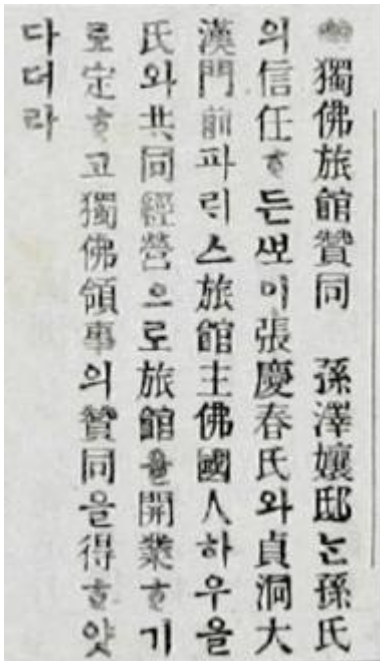 ◉獨佛旅館贊同 孫澤孃邸ᄂᆞᆫ孫氏
의信任ᄒᆞ든ᄲᅩ이張慶春氏와貞洞大
漢門前파리스旅館主佛國人하우을
氏와共同經營으로旅館을開業ᄒᆞ기
로定ᄒᆞ고獨佛領事의贊同을得ᄒᆞ얏
다더라